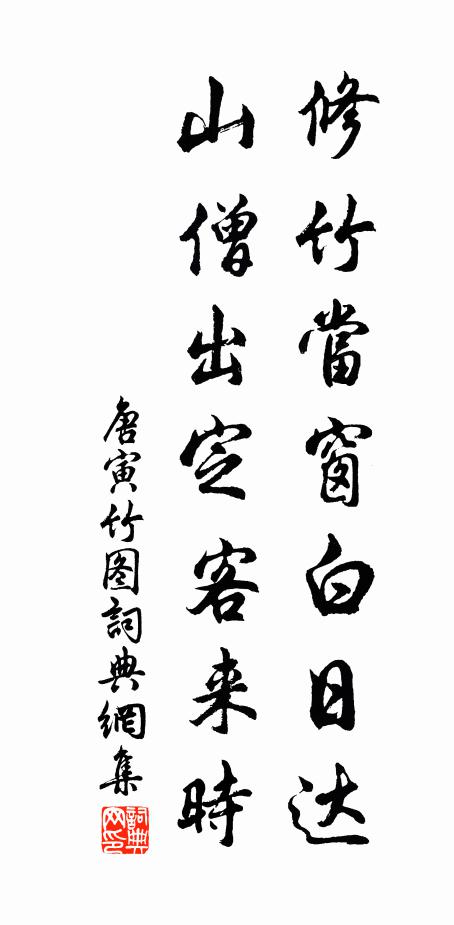 修竹當窗白日达
山僧出定客来時
唐寅竹图詞典網集
詞典网印